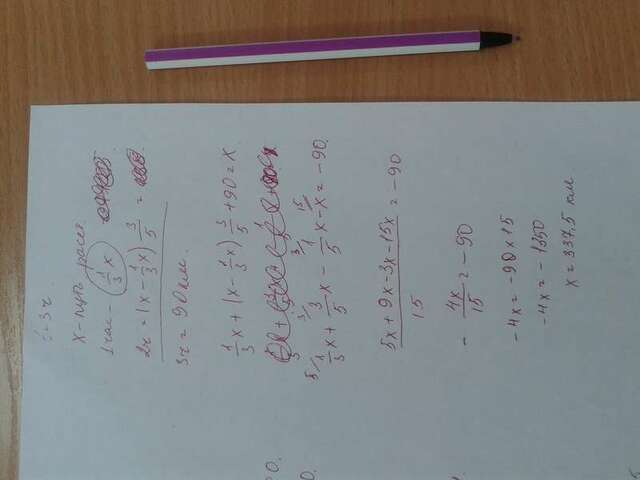 3ч
x - путь расст
1 час - (1/3 x)
2ч = (x - 1/3 x) 3/5 =
3ч = 90 км.
1/3 x + (x - 1/3 x) 3/5 + 90 = x
5/ 1/3 x + 3/ 3/5 x - 3/ 1/5 x - 15/ x = -90
5x + 9x - 3x - 15x / 15 = -90
- 4x/15 = -90
-4x = -90 x 15
-4x = -1350
x = 337,5 км
0.
0.